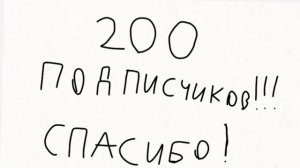 200
ПОДПИСЧИКОВ!!!
СПАСИБО!